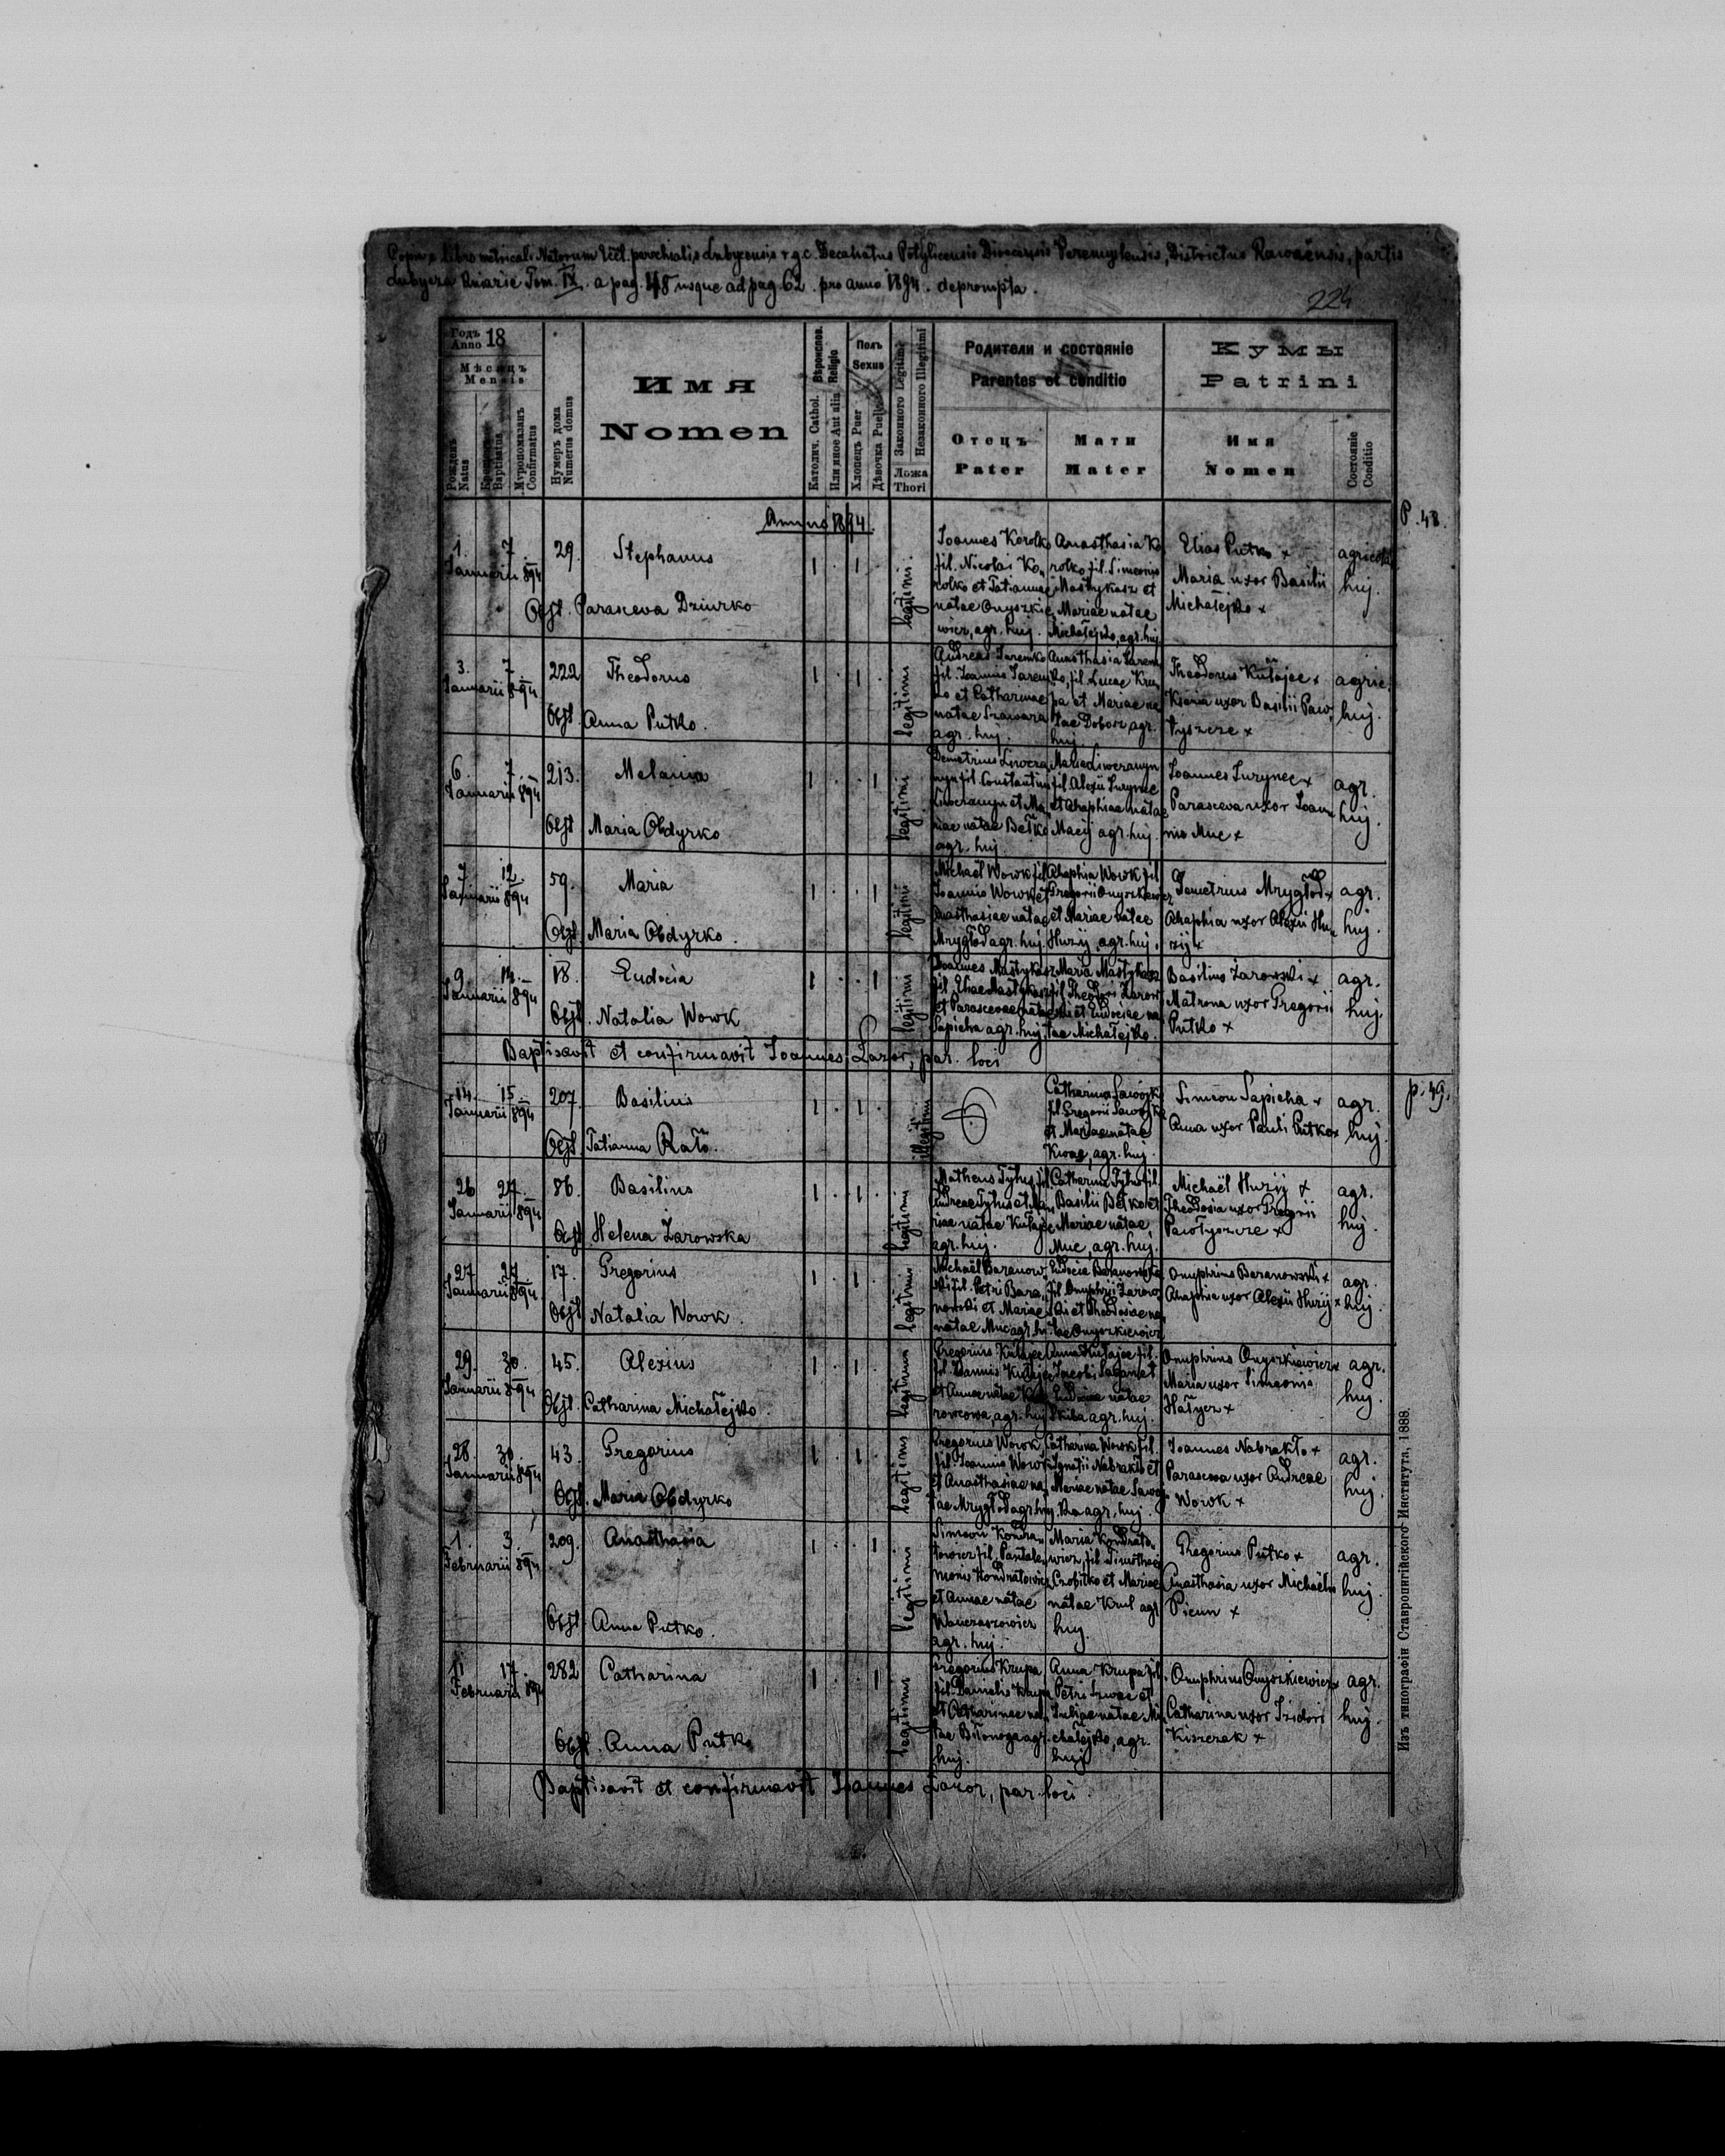 Copia ex libro metricali Natorum Eccl. parochialis Lubycensis r.g.c. Decanatus Potylicensis Dioecesis Peremyslensis, Districtus Rawaënsis, partis
Lubycza Kniazie Tom. IX. a pag. 48 usque ad pag. 62. pro anno 1894. deprompta.
224
Годъ Anno 18
Мѣсяцъ Mensis
Рожденъ Natus
Baptisatus
Мѵропомазанъ Confirmatus
Нумеръ дома Numerus domus
Имя
Nomen
Вѣроисповѣд. Religio
Католич. Cathol.
Или иное Aut alia
Полъ Sexus
Хлопецъ Puer
Дѣвочка Puella
Законного Legitimi
Незаконного Illegitimi
Ложа Thori
Родители и состояніе
Parentes et conditio
Отецъ Pater
Мати Mater
Кумы
Patrini
Имя Nomen
Состояніе Conditio
Anno 1894.
P. 48.
1. 7. Januarii 894
29. Stephanus
Obst. Parasceva Dziurko
legitimi
Joannes Korolko
fil. Nicolai Ko-
rolko et Tatiannae
natae Onyszkie-
wicz, agr. huj.
Anasthasia Ko-
rolko fil. Simeonis
Mastykasz et
Mariae natae
Michałejko, agr. huj.
Elias Putko +
Maria uxor Basilii
Michałejko +
agricolae
huj.
3. 7. Januarii 894
222 Theodorus
Obst. Anna Putko.
legitimi
Andreas Jaremko
fil. Joannis Jarem-
ko et Catharinae
natae Szawara
agr. huj.
Anasthasia Jarem-
ko, fil. Lucae Kru-
pa et Mariae na-
tae Dobosz agr.
huj.
Theodorus Kułajec +
Ksenia uxor Basilii Paw-
łyszcze +
agric.
huj.
6. 7. Januarii 894
213. Melania
Obst. Maria Obdyrko
legitimi
Macij agr. huj.
agr. huj.
Joannes Jurynec +
Parasceva uxor Joan-
nis Muc +
agr.
huj.
7. 12. Januarii 894
59. Maria
Obst. Maria Obdyrko.
legitimi
Michaël Wowk fil.
Joannis Wowk et
Anasthasiae natae
Mrygłod agr. huj.
Ahaphia Wowk fil.
Gregorii Onyszkiewicz
et Mariae natae
Huzij, agr. huj.
Demetrius Mrygłod +
Ahaphia uxor Alexii Hu-
zij +
agr.
huj.
9. 14. Januarii 894
18. Eudocia
Obst. Natalia Wowk
legitimi
Joannes Mastykasz
fil. Eliae Mastykasz
et Parascevae natae
Sapieha agr. huj.
Maria Mastykasz
fil. Theodori Żarow-
ski et Eudociae na-
tae Michałejko.
Basilius Żarowski +
Matrona uxor Gregorii
Putko +
agr.
huj.
Baptisavit et confirmavit Joannes Łazor, par. loci
p. 49.
14. 15. Januarii 894
207. Basilius
Obst. Tatianna Rało.
illegitimi
Catharina
fil. Gregorii
et Mariae natae
Kwas, agr. huj.
Simeon Sapieha +
Anna uxor Pauli Putko +
agr.
huj.
26 27. Januarii 894
86. Basilius
Obst. Helena Żarowska
legitimi
Matheus Tyhus, fil.
Andreae Tyhus et Ma-
riae natae Kułajec
agr. huj.
Catharina Tyhus fil.
Basilii Betko et
Mariae natae
Muc, agr. huj.
Michaël Huzij +
Theodosia uxor Gregorii
Pawłyszcze +
agr.
huj.
27 27 Januarii 894.
17. Gregorius
Obst. Natalia Wowk.
legitimi
Michaël Baranow-
ski fil. Petri Bara-
nowski et Mariae
natae Muc agr. hu.
Eudocia Baranowska
fil. Onuphrii Żarow-
ski et Theodosiae na-
tae Onyszkiewicz
Onuphrius Baranowski +
Ahaphia uxor Alexii Huzij +
agr.
huj.
29. 30. Januarii 894
45. Alexius
Obst. Catharina Michałejko.
legitimus
Gregorius Kułajec
fil. Joannis Kułajec
et Annae natae
agr. huj.
Anna Kułajec fil.
Jacobi Sagan et
Eudociae natae
Skiba agr. huj.
Onuphrius Onyszkiewicz +
Maria uxor Simeonis
Hałycz +
agr.
huj.
28. 30. Januarii 894
43. Gregorius
Obst. Maria Obdyrko
legitimi
Gregorius Wowk,
fil. Joannis Wowk
et Anasthasiae na-
tae Mrygłod agr. huj.
Catharina Wowk fil.
Ignatii Nabrakło et
Mariae natae
agr. huj.
Joannes Nabrakło +
Parasceva uxor Andreae
Wowk +
agr.
huj.
1. 3. Februarii 894
209. Anasthasia
Obst. Anna Putko.
legitimi
Simeon Kondra-
towicz fil. Pantale-
monis Kondratowicz
et Annae natae
Wanczaszowicz
agr. huj.
Maria Kondrato-
wicz, fil. Timothei
Czobitko et Mariae
natae Krul agr.
huj.
Gregorius Putko +
Anasthasia uxor Michaëlis
Picun +
agr.
huj.
11 17. Februarii 894
282 Catharina
Obst. Anna Putko
legitimus
Gregorius Krupa
fil. Danielis Krupa
et Catharinae na-
tae Biłonoga agr.
huj.
Anna Krupa fil.
Petri Szwac et
Juliae natae Mi-
chałejko, agr.
huj.
Onuphrius Onyszkiewicz +
Catharina uxor Izidori
Kiszczak +
agr.
huj.
Baptisavit et confirmavit Joannes Łazor, par. loci.
Изъ типографіи Ставропигійского Института, 1888.